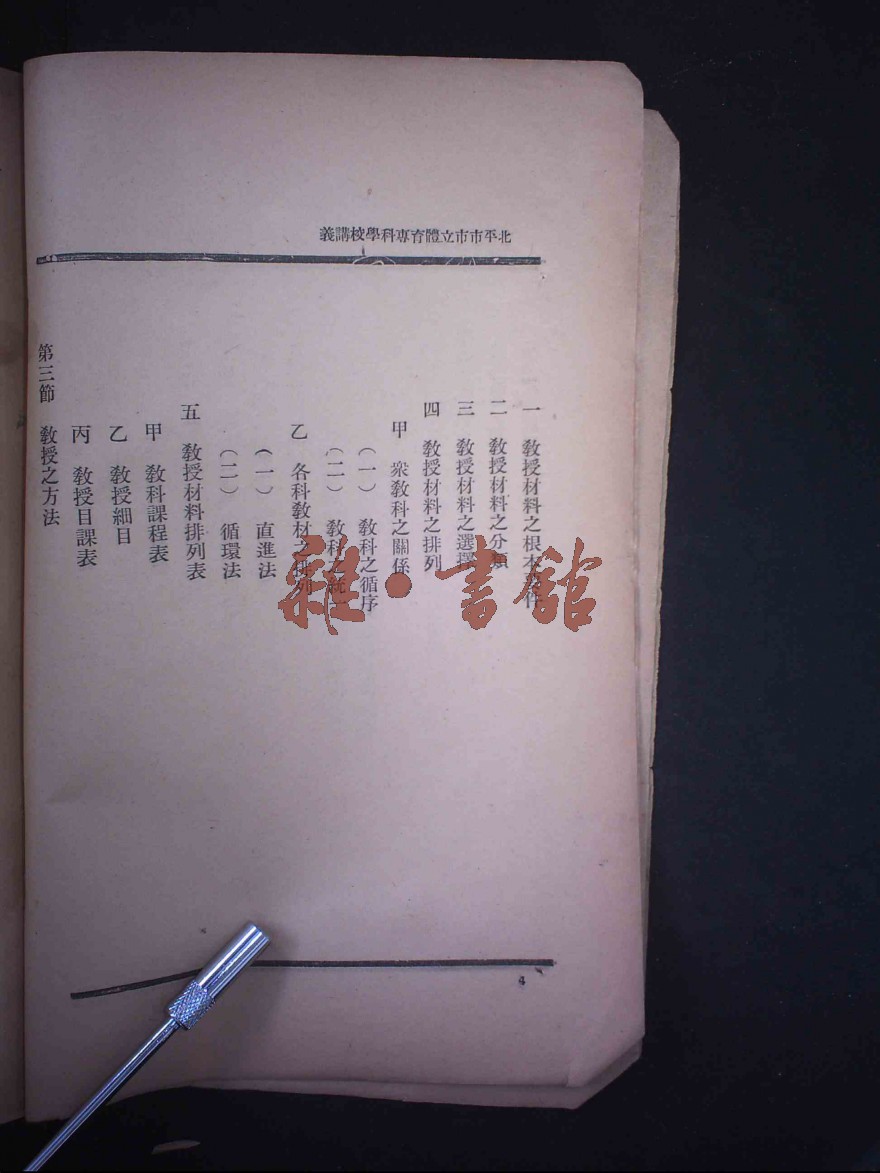 北平市市立體育專科學校講義
一　教授材料之根本條件
二　教授材料之分類
三　教授材料之選擇
四　教授材料之排列
甲　衆教科之關係
（一）　教科之循序
（二）　教科　統
乙　各科教材之排列
（一）　直進法
（二）　循環法
五　教授材料排列表
甲　教科課程表
乙　教授細目
丙　教授目課表
第三節　教授之方法
4
雜·書館